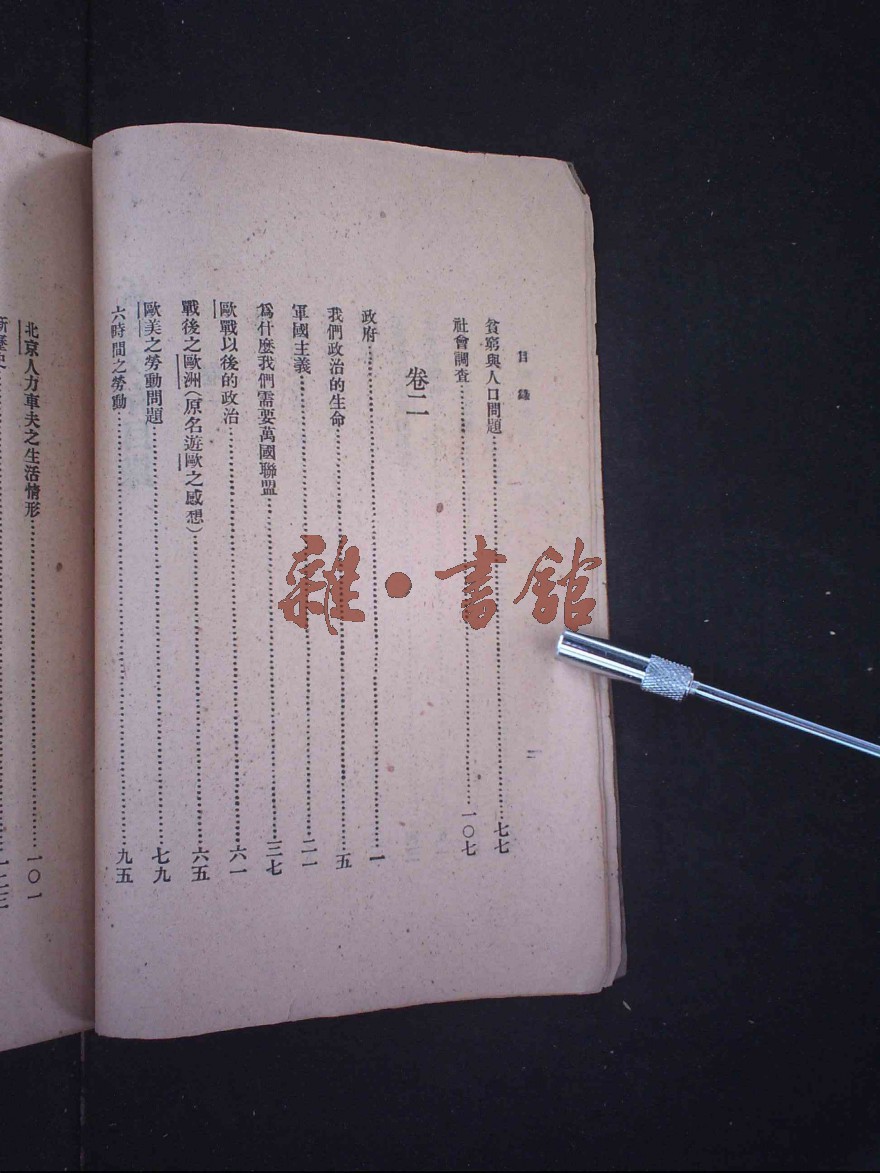 目錄
貧窮與人口問題……七七
社會調查……一〇七
卷二
政府……一
我們政治的生命……五
軍國主義……二一
爲什麼我們需要萬國聯盟……三七
歐戰以後的政治……六一
戰後之歐洲（原名遊歐之感想）……六五
歐美之勞動問題……七九
六時間之勞動……九五
二
北京人力車夫之生活情形……一〇一
新歷史
雜·書館